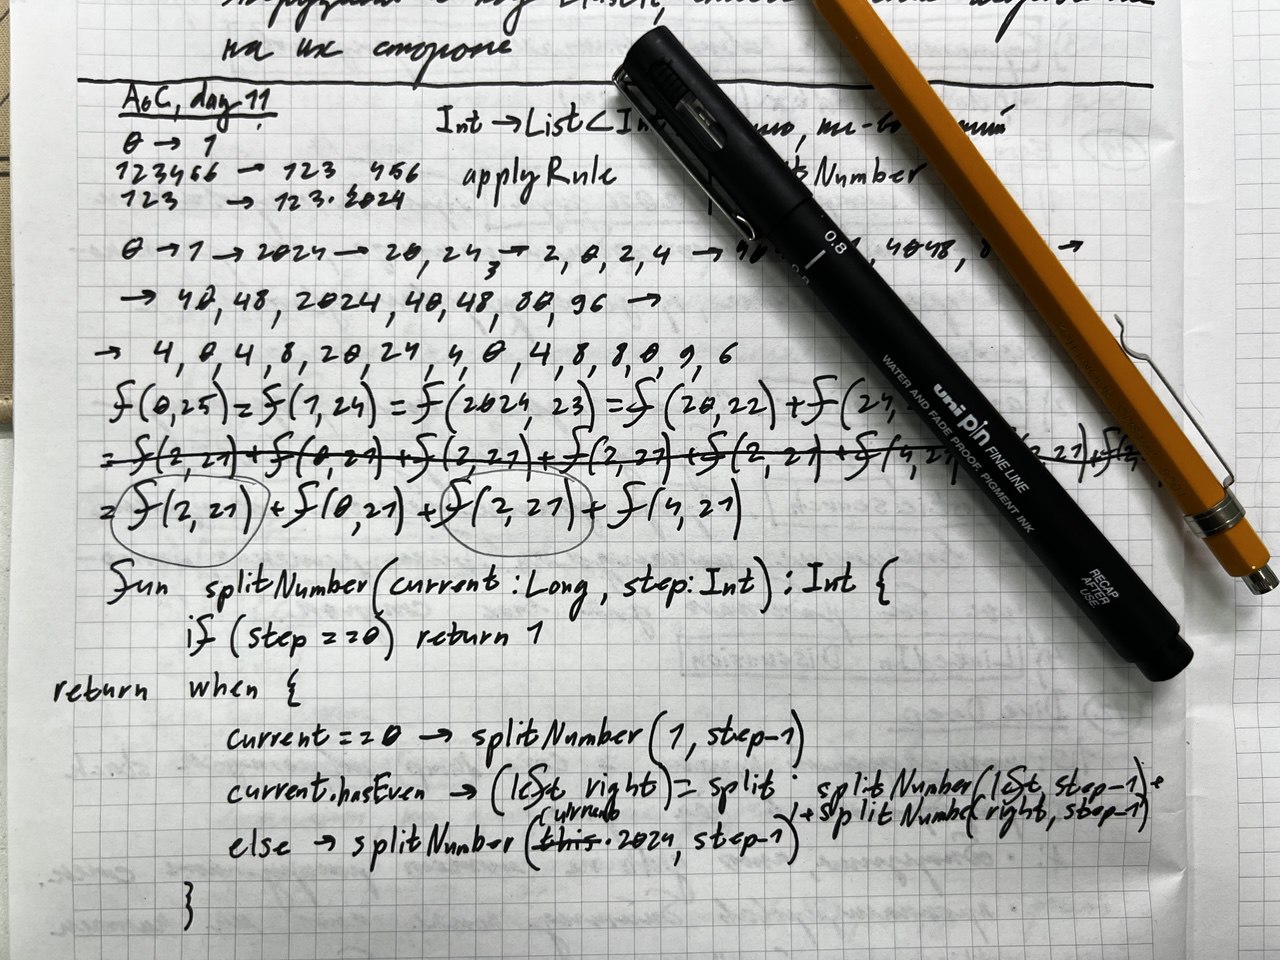 на их стороне
AoC, day 11
0 → 1
123466 → 123 456
123 → 123·2024
Int → List<In
applyRule
Number
0 → 1 → 2024 → 20, 24, → 2, 0, 2, 4 → , 4048, →
3
→ 40, 48, 2024, 40, 48, 80, 96 →
→ 4, 0, 4, 8, 20, 24, 4, 0, 4, 8, 8, 0, 9, 6
f(0,25) = f(1,24) = f(2024, 23) = f(20,22) + f(24,
= f(2,21) + f(0,21) + f(2,21) + f(2,21) + f(2,21) + f(4,21
= f(2,21) + f(0,21) + f(2,21) + f(4,21)
fun splitNumber(current: Long, step: Int): Int {
if (step == 0) return 1
return when {
current == 0 → splitNumber(1, step-1)
current.hasEven → (left right) = split : splitNumber(left, step-1) +
+ splitNumber(right, step-1)
current
else → splitNumber(this·2024, step-1)
}
0.8
uni pin FINE LINE
WATER AND FADE PROOF, PIGMENT INK
RECAP
AFTER
USE